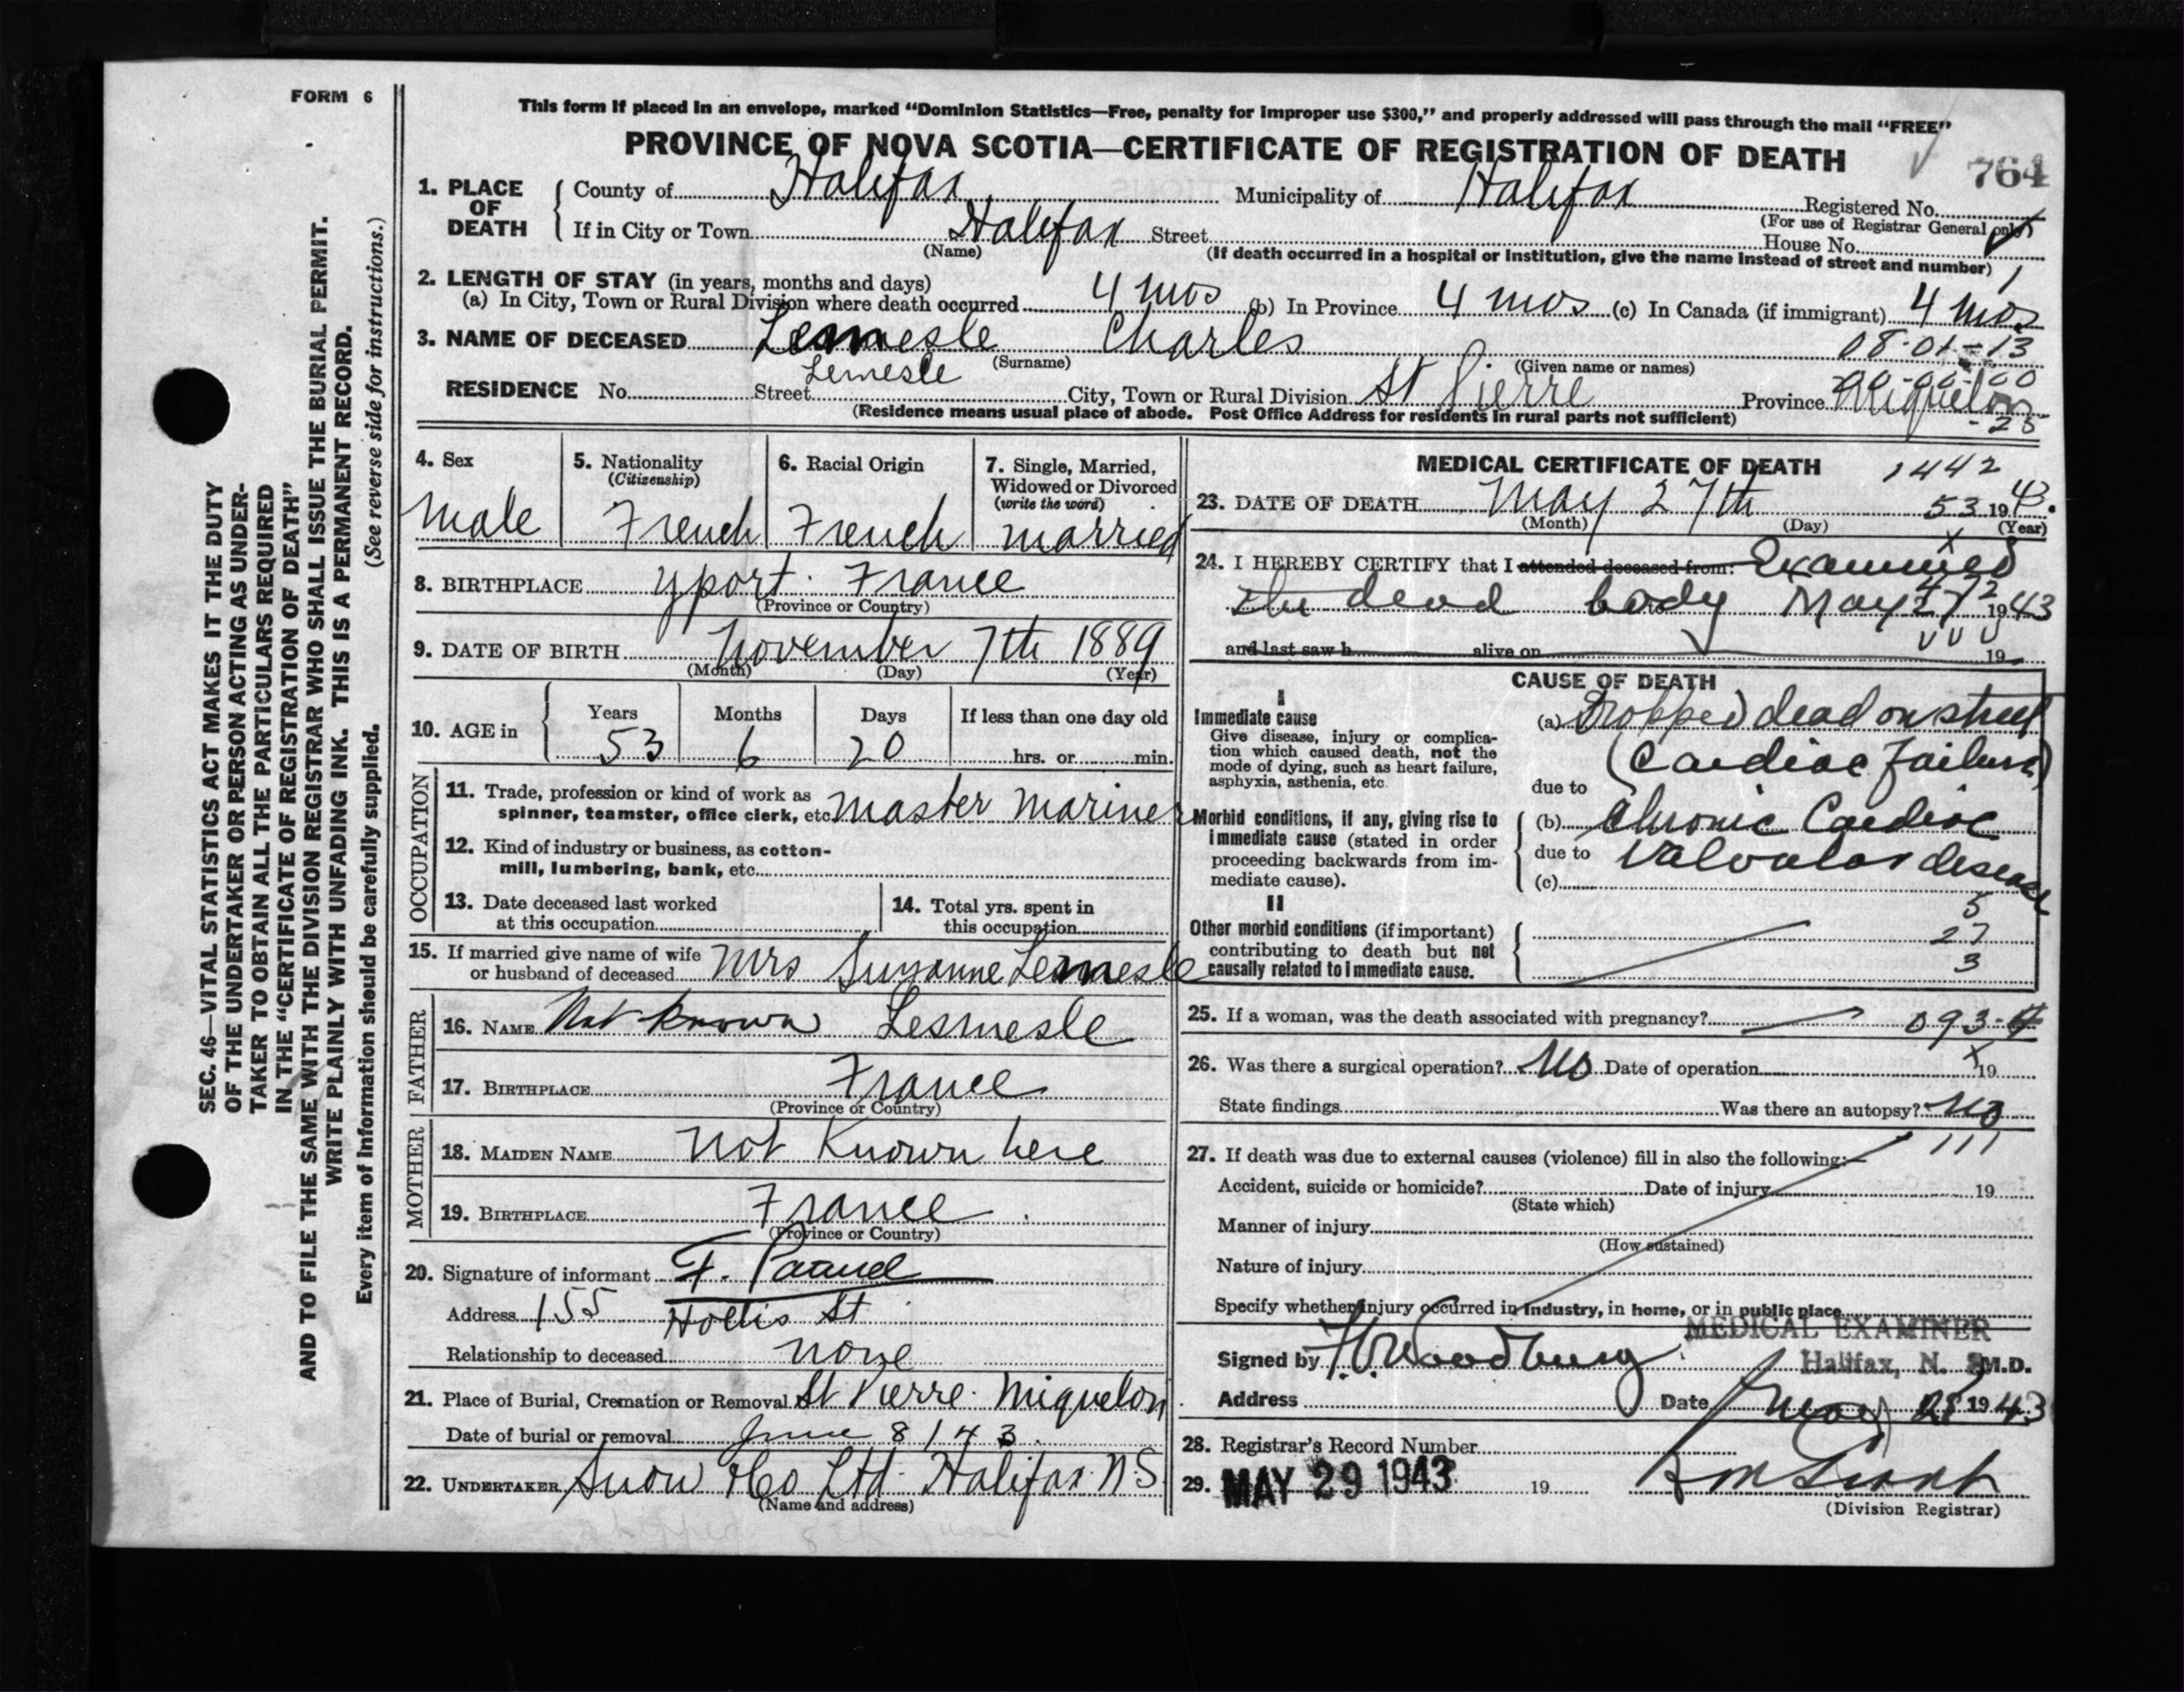 FORM 6
SEC. 46—VITAL STATISTICS ACT MAKES IT THE DUTY
OF THE UNDERTAKER OR PERSON ACTING AS UNDER-
TAKER TO OBTAIN ALL THE PARTICULARS REQUIRED
IN THE "CERTIFICATE OF REGISTRATION OF DEATH"
AND TO FILE THE SAME WITH THE DIVISION REGISTRAR WHO SHALL ISSUE THE BURIAL PERMIT.
WRITE PLAINLY WITH UNFADING INK. THIS IS A PERMANENT RECORD.
Every item of information should be carefully supplied. (See reverse side for instructions.)
This form if placed in an envelope, marked "Dominion Statistics—Free, penalty for improper use $300," and properly addressed will pass through the mail "FREE"
PROVINCE OF NOVA SCOTIA—CERTIFICATE OF REGISTRATION OF DEATH
764
1. PLACE OF DEATH
County of Halifax Municipality of Halifax Registered No.
(For use of Registrar General only)
If in City or Town Halifax Street House No.
(Name) (If death occurred in a hospital or institution, give the name instead of street and number) 1
2. LENGTH OF STAY (in years, months and days)
(a) In City, Town or Rural Division where death occurred 4 mos (b) In Province 4 mos (c) In Canada (if immigrant) 4 mos
3. NAME OF DECEASED Lemesle Charles 08-01-13
(Surname) (Given name or names)
Lemesle 00-00-00
RESIDENCE No. Street City, Town or Rural Division St Pierre Province Miquelon
(Residence means usual place of abode. Post Office Address for residents in rural parts not sufficient) -25
4. Sex
Male
5. Nationality
(Citizenship)
French
6. Racial Origin
French
7. Single, Married,
Widowed or Divorced
(write the word)
married
8. BIRTHPLACE yport. France
(Province or Country)
9. DATE OF BIRTH November 7th 1889
(Month) (Day) (Year)
10. AGE in
Years Months Days If less than one day old
53 6 20 hrs. or min.
OCCUPATION
11. Trade, profession or kind of work as
spinner, teamster, office clerk, etc. Master Mariner
12. Kind of industry or business, as cotton-
mill, lumbering, bank, etc.
13. Date deceased last worked
at this occupation
14. Total yrs. spent in
this occupation
15. If married give name of wife
or husband of deceased Mrs Suzanne Lemesle
FATHER
16. NAME Not known Lesmesle
17. BIRTHPLACE France
(Province or Country)
MOTHER
18. MAIDEN NAME Not Known here
19. BIRTHPLACE France
(Province or Country)
20. Signature of informant F.
Address 155 Hollis St
Relationship to deceased None
21. Place of Burial, Cremation or Removal St Pierre Miquelon
Date of burial or removal June 8/43.
22. UNDERTAKER Snow & Co Ltd. Halifax N.S.
(Name and address)
MEDICAL CERTIFICATE OF DEATH 1442
23. DATE OF DEATH May 27th 53 1943.
(Month) (Day) (Year)
24. I HEREBY CERTIFY that I attended deceased from: Examined
the dead body May 27 1943
and last saw h alive on 19
CAUSE OF DEATH
I
Immediate cause
Give disease, injury or complica-
tion which caused death, not the
mode of dying, such as heart failure,
asphyxia, asthenia, etc.
(a) Dropped dead on street
(Cardiac Failure)
due to
Morbid conditions, if any, giving rise to
immediate cause (stated in order
proceeding backwards from im-
mediate cause).
(b) Chronic Cardiac
due to Valvular disease
(c)
II
Other morbid conditions (if important)
contributing to death but not
causally related to immediate cause.
5
27
3
25. If a woman, was the death associated with pregnancy? 093-
26. Was there a surgical operation? No Date of operation 19
State findings Was there an autopsy? No
27. If death was due to external causes (violence) fill in also the following:— 111
Accident, suicide or homicide? Date of injury 19
(State which)
Manner of injury
(How sustained)
Nature of injury
Specify whether injury occurred in industry, in home, or in public place
MEDICAL EXAMINER
Signed by Woodbury Halifax, N. S. M.D.
Address Date May 28 1943
28. Registrar's Record Number
29. MAY 29 1943 19
(Division Registrar)